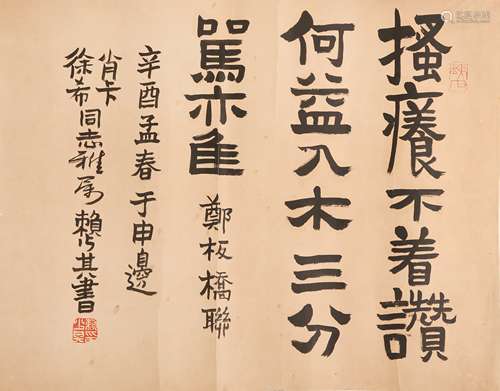 搔癢不着讚
何益入木三分
駡亦隹
鄭板橋聯
辛酉孟春于申邊
肖卞
徐希同志雅属
賴少其書